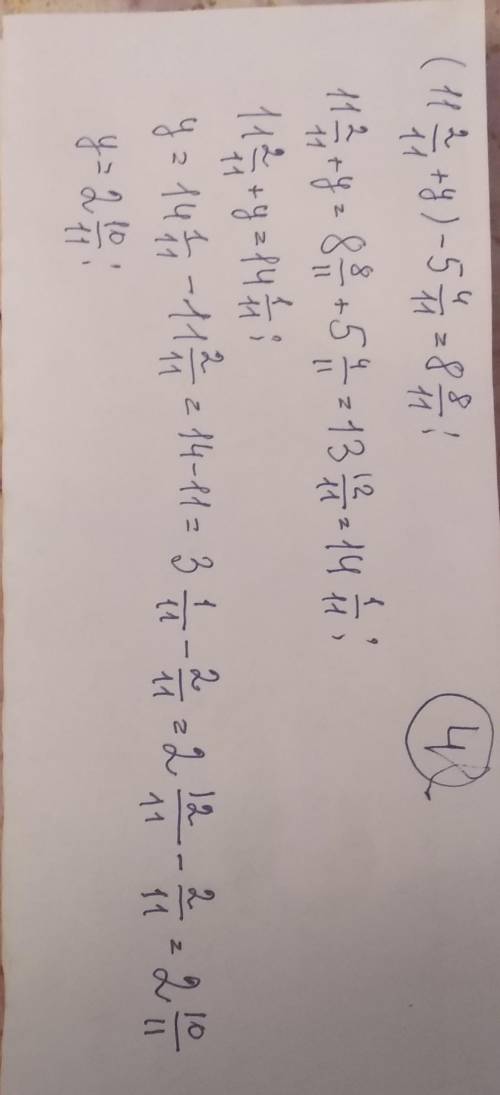 (11 2/11 + y) - 5 4/11 = 8 8/11;
11 2/11 + y = 8 8/11 + 5 4/11 = 13 12/11 = 14 1/11;
11 2/11 + y = 14 1/11;
y = 14 1/11 - 11 2/11 = 14 - 11 = 3 1/11 - 2/11 = 2 12/11 - 2/11 = 2 10/11
y = 2 10/11;